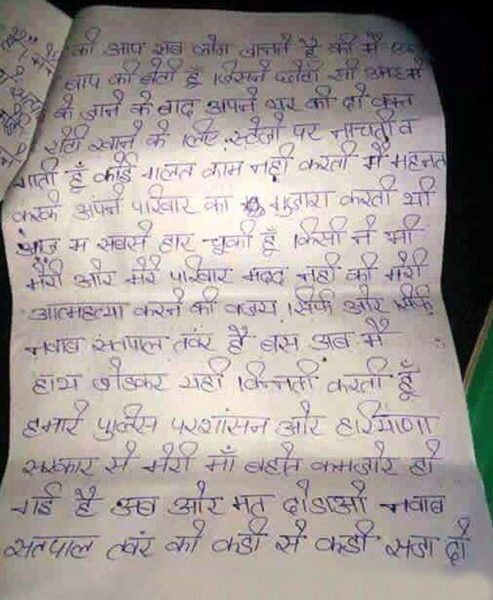 की आप सब लोग जानते है की मै एक
बाप की बेटी हूँ जिसने छोटी सी उम्र मे
के जाने के बाद अपने घर की दो वक्त
रोटी खाने के लिए स्टेजो पर नाचती व
गाती हूँ कोई गलत काम नही करती मै महनत
करके अपने परिवार का गुजारा करती थी
आज म सबसे हार चूकी हूँ किसी ने भी
मेरी और मेरे परिवार मदद नही की मेरी
आत्महत्या करने की वजय सिर्फ और सिर्फ
नवाब सतपाल तवंर है बस अब मै
हाथ जोडकर यही विनती करती हूँ
हमारे पुलिस परशासन और हरियाणा
सरकार से मेरी माँ बहोत कमजोर हो
गई है अब और मत दोडाओ नवाब
सतपाल तवंर को कडी से कडी सजा दो